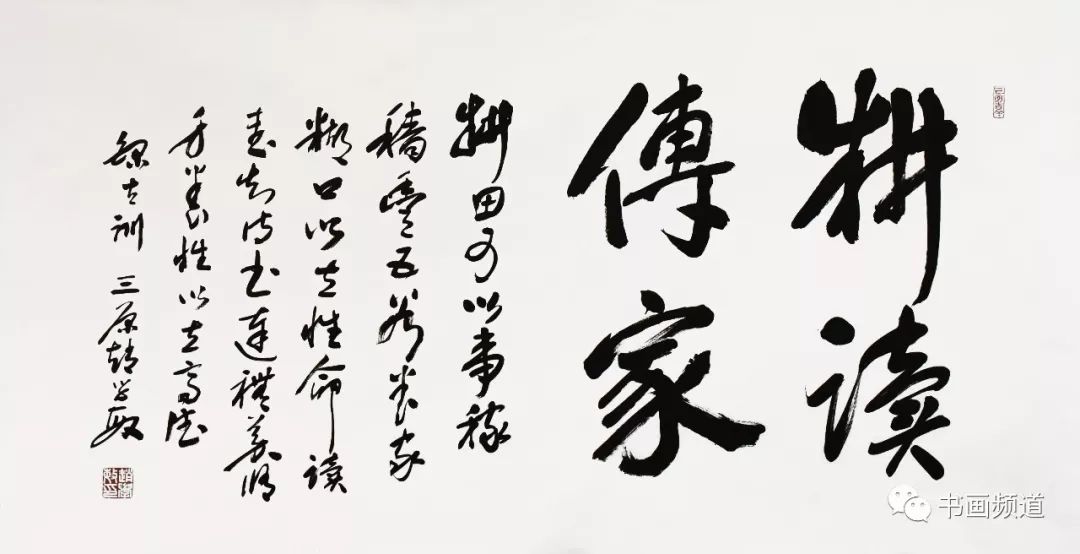 耕讀
傳家
耕田可以事稼
穡豐五穀养家
糊口以立性命读
書知诗书達禮義修
身养性以立高德
錄古训 三原趙学敏
趙學敏印
书画频道